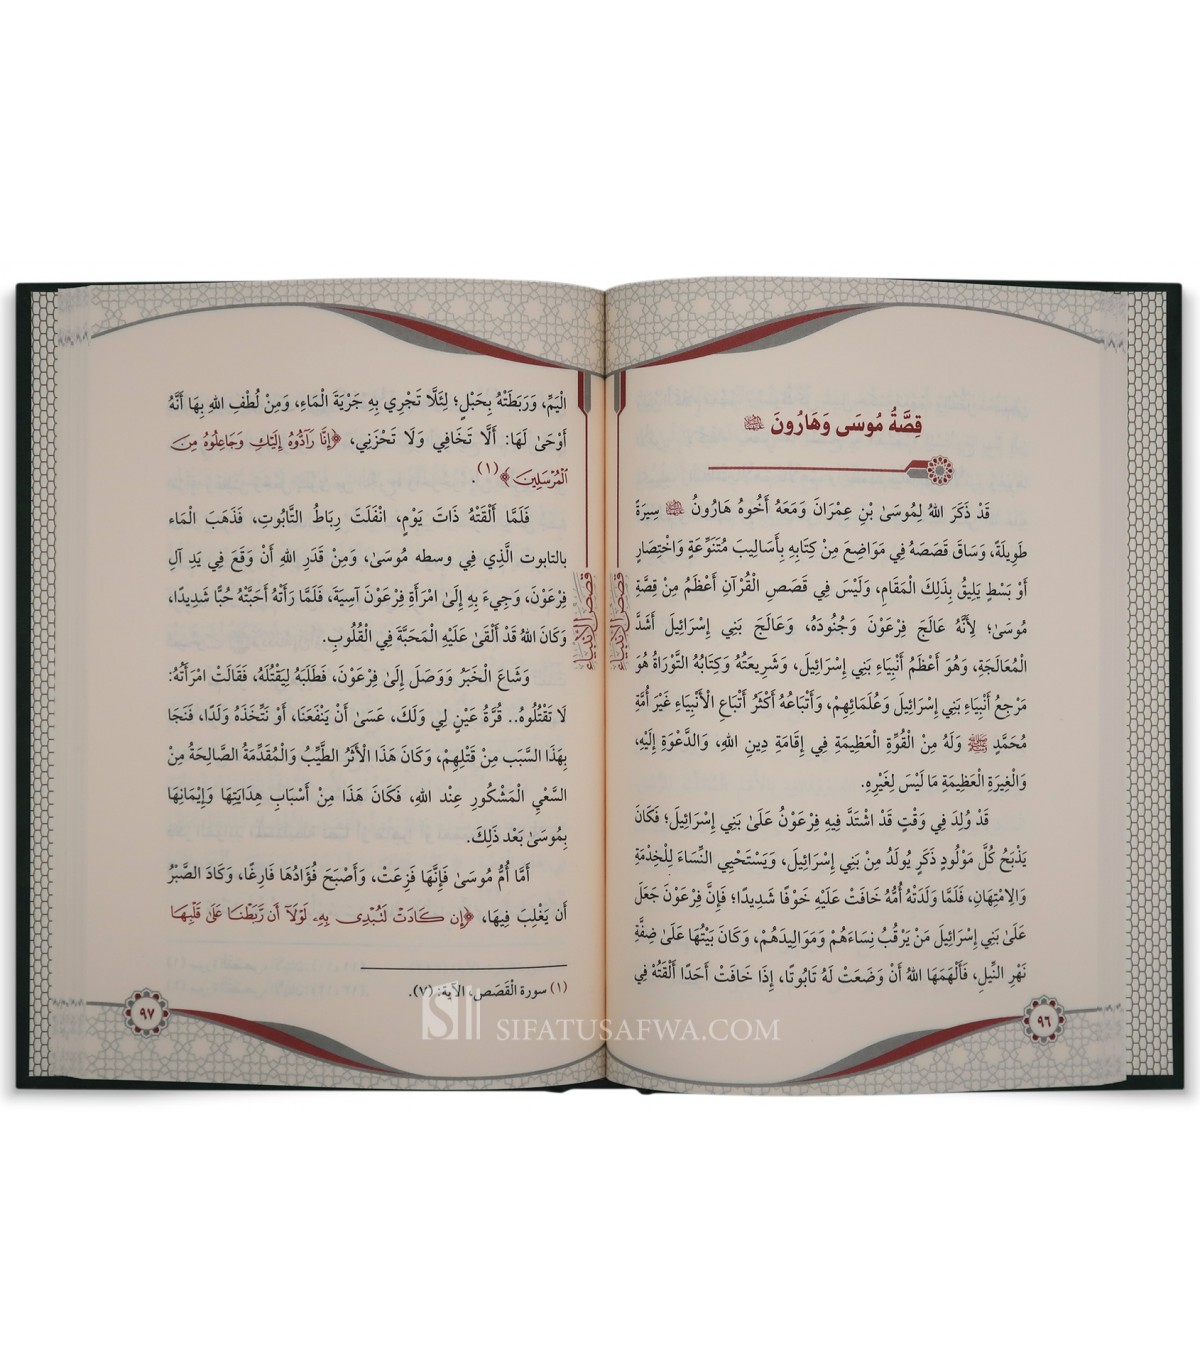 قِصَّةُ مُوسَى وَهَارُونَ
قَدْ ذَكَرَ اللهُ لِمُوسَىٰ بْنِ عِمْرَانَ وَمَعَهُ أَخُوهُ هَارُونُ سِيرَةً
طَوِيلَةً، وَسَاقَ قَصَصَهُ فِي مَوَاضِعَ مِنْ كِتَابِهِ بِأَسَالِيبَ مُتَنَوِّعَةٍ وَاخْتِصَارٍ
أَوْ بَسْطٍ يَلِيقُ بِذَلِكَ الْمَقَامِ، وَلَيْسَ فِي قَصَصِ الْقُرْآنِ أَعْظَمُ مِنْ قِصَّةِ
مُوسَىٰ؛ لِأَنَّهُ عَالَجَ فِرْعَوْنَ وَجُنُودَهُ، وَعَالَجَ بَنِي إِسْرَائِيلَ أَشَدَّ
الْمُعَالَجَةِ، وَهُوَ أَعْظَمُ أَنْبِيَاءِ بَنِي إِسْرَائِيلَ، وَشَرِيعَتُهُ وَكِتَابُهُ التَّوْرَاةُ هُوَ
مَرْجِعُ أَنْبِيَاءِ بَنِي إِسْرَائِيلَ وَعُلَمَائِهِمْ، وَأَتْبَاعُهُ أَكْثَرُ أَتْبَاعِ الْأَنْبِيَاءِ غَيْرَ أُمَّةِ
مُحَمَّدٍ ﷺ وَلَهُ مِنْ الْقُوَّةِ الْعَظِيمَةِ فِي إِقَامَةِ دِينِ اللهِ، وَالدَّعْوَةِ إِلَيْهِ،
وَالْغِيرَةِ الْعَظِيمَةِ مَا لَيْسَ لِغَيْرِهِ.
قَدْ وُلِدَ فِي وَقْتٍ قَدْ اشْتَدَّ فِيهِ فِرْعَوْنُ عَلَىٰ بَنِي إِسْرَائِيلَ؛ فَكَانَ
يَذْبَحُ كُلَّ مَوْلُودٍ ذَكَرٍ يُولَدُ مِنْ بَنِي إِسْرَائِيلَ، وَيَسْتَحْيِي النِّسَاءَ لِلْخِدْمَةِ
وَالِامْتِهَانِ، فَلَمَّا وَلَدَتْهُ أُمُّهُ خَافَتْ عَلَيْهِ خَوْفًا شَدِيدًا؛ فَإِنَّ فِرْعَوْنَ جَعَلَ
عَلَىٰ بَنِي إِسْرَائِيلَ مَنْ يَرْقُبُ نِسَاءَهُمْ وَمَوَالِيدَهُمْ، وَكَانَ بَيْتُهَا عَلَىٰ ضِفَّةِ
نَهْرِ النِّيلِ، فَأَلْهَمَهَا اللهُ أَنْ وَضَعَتْ لَهُ تَابُوتًا، إِذَا خَافَتْ أَحَدًا أَلْقَتْهُ فِي
٩٦
قصص الأنبياء
قصص الأنبياء
الْيَمِّ، وَرَبَطَتْهُ بِحَبْلٍ؛ لِئَلَّا تَجْرِي بِهِ جَرْيَةُ الْمَاءِ، وَمِنْ لُطْفِ اللهِ بِهَا أَنَّهُ
أَوْحَىٰ لَهَا: أَلَّا تَخَافِي وَلَا تَحْزَنِي، ﴿إِنَّا رَآدُّوهُ إِلَيْكِ وَجَاعِلُوهُ مِنَ
ٱلْمُرْسَلِينَ﴾(١).
فَلَمَّا أَلْقَتْهُ ذَاتَ يَوْمٍ، انْفَلَتَ رِبَاطُ التَّابُوتِ، فَذَهَبَ الْمَاء
بالتابوت الَّذِي فِي وسطه مُوسَىٰ، وَمِنْ قَدَرِ اللهِ أَنْ وَقَعَ فِي يَدِ آلِ
فِرْعَوْنَ، وَجِيءَ بِهِ إِلَىٰ امْرَأَةِ فِرْعَوْنَ آسِيَةَ، فَلَمَّا رَأَتْهُ أَحَبَّتْهُ حُبًّا شَدِيدًا،
وَكَانَ اللهُ قَدْ أَلْقَىٰ عَلَيْهِ الْمَحَبَّةَ فِي الْقُلُوبِ.
وَشَاعَ الْخَبَرُ وَوَصَلَ إِلَىٰ فِرْعَوْنَ، فَطَلَبَهُ لِيَقْتُلَهُ، فَقَالَتْ امْرَأَتُهُ:
لَا تَقْتُلُوهُ.. قُرَّةُ عَيْنٍ لِي وَلَكَ، عَسَىٰ أَنْ يَنْفَعَنَا، أَوْ نَتَّخِذَهُ وَلَدًا، فَنَجَا
بِهَذَا السَّبَب مِنْ قَتْلِهِمْ، وَكَانَ هَذَا الْأَثَرُ الطَّيِّبُ وَالْمُقَدِّمَةُ الصَّالِحَةُ مِنْ
السَّعْيِ الْمَشْكُورِ عِنْد اللهِ، فَكَانَ هَذَا مِنْ أَسْبَابِ هِدَايَتِهَا وَإِيمَانِهَا
بِمُوسَىٰ بَعْدَ ذَلِكَ.
أَمَّا أُمُّ مُوسَىٰ فَإِنَّهَا فَزِعَتْ، وَأَصْبَحَ فُؤَادُهَا فَارِغًا، وَكَادَ الصَّبْرُ
أَن يَغْلِبَ فِيهَا، ﴿إِن كَادَتْ لَتُبْدِى بِهِۦ لَوْلَآ أَن رَّبَطْنَا عَلَىٰ قَلْبِهَا
(١) سورة الْقَصَص، الآية: (٧).
٩٧
SIFATUSAFWA.COM